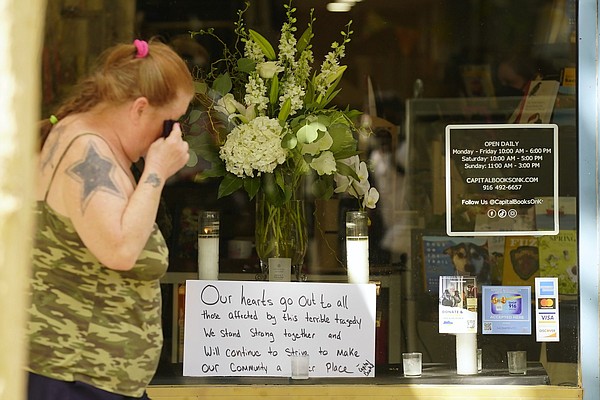 OPEN DAILY
Monday - Friday 10:00 AM - 6:00 PM
Saturday: 10:00 AM - 5:00 PM
Sunday: 11:00 AM - 3:00 PM
CAPITALBOOKSONK.COM
916 492-6657
Follow Us @CapitalBooksOnK
Our hearts go out to all
those affected by this terrible tragedy
We stand strong together and
will continue to strive to make
our community a Place
DONATE
VISA
DISCOVER